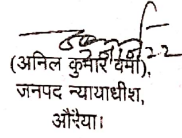 (अनिल कुमार वर्मा),
जनपद न्यायाधीश,
औरैया।